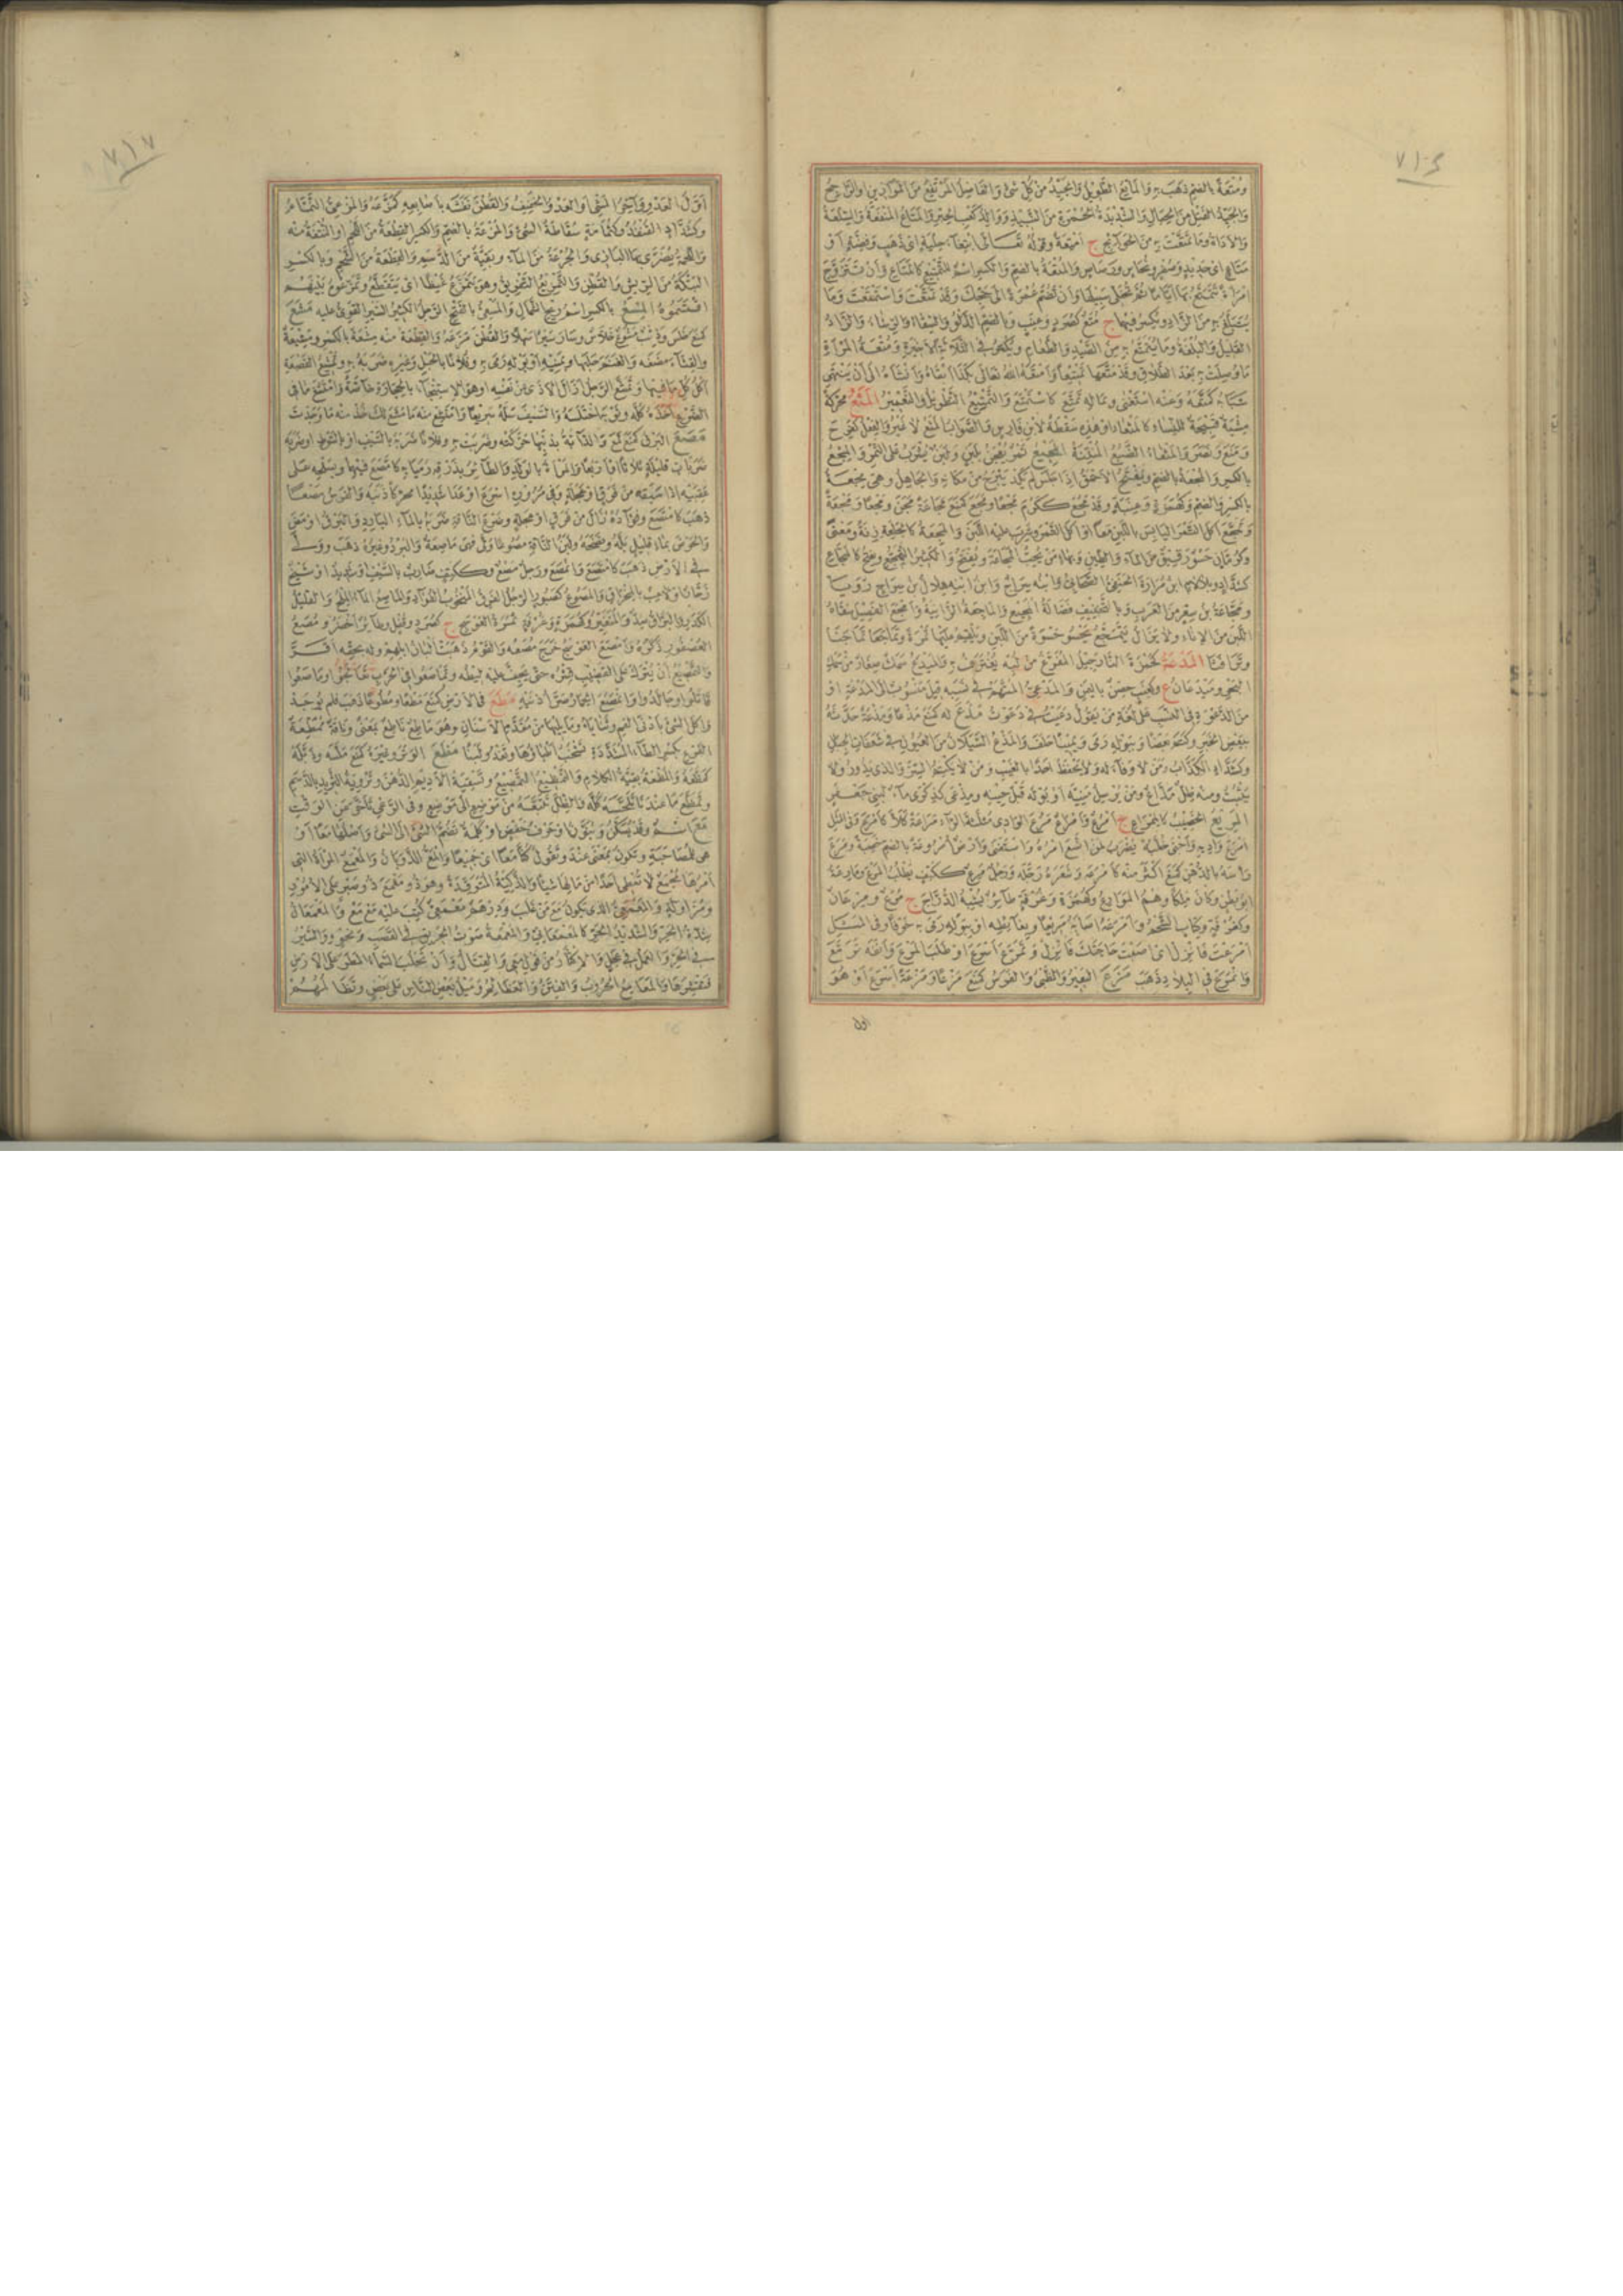 ومتعة بالضم ذهب به والماتع الطويل والجيد من كل شئ والفاضل المرتفع من الموازين او الراجح
والجيد الفتل من الحبال والشديد الحمرة من النبيذ ووالد كعب الحبر والمتاع المنفعة والسلعة
والاداة وما تمتعت به من الحوائج ج امتعة وقوله تعالى ابتغاء حلية اى ذهب وفضة او
متاع اى حديد وصفر ونحاس ورصاص والمتعة بالضم والكسر اسم للتمتيع كالمتاع وان تتزوج
امرأة تتمتع بها اياما ثم تخلى سبيلها وان تضم عمرة الى حجك وقد تمتعت واستمتعت وما
يتبلغ به من الزاد ويكسر فيهما ج متع كصرد وعنب وبالضم الدلو والسقاء والرشاء والزاد
القليل والبلغة وما يتمتع به من الصيد والطعام ويكسر فى الثلاثة الاخيرة ومتعة المرأة
ما وصلت به بعد الطلاق وقد متعها تمتيعا وامتعه الله تعالى بكذا ابقاه وانشأه الى ان ينتهى
شبابه كمتعه وعنه استغنى وبماله تمتع كاستمتع والتمتيع التطويل والتعمير المثع محركة
مشية قبيحة للنساء كالمثعاء او هذه سقطة لابن فارس والصواب المثع لا غير والفعل كفرح
ومنع ونصر والمثعاء الضبع المنتنة المجيع تمر يعجن بلبن ولبن يشرب على التمر والمجع
بالكسر والمجعة بالضم ويفتح الاحمق اذا جلس لم يكد يبرح من مكانه والجاهل وهى مجعة
بالكسر والضم وكهمزة وعنبة وقد مجع ككرم مجعا ومجع كمنع مجاعة مجن ومجعا ومجعة
وتمجع اكل التمر اليابس باللبن معا او اكل التمر وشرب عليه اللبن والمجعة كالجلعة زنة ومعنى
وكرمان حسو رقيق من الماء والطحين وبهاء من يحب المجاعة ويفتح والكثير التمجع ويفتح كالمجاع
كشداد وبلالام ابن مرارة الحنفى الصحابى وابنه سراج وابن ابنه هلال بن سراج رويا
ومجاعة بن سعر من العرب وبالتخفيف فضالة المجيع والماجعة الزانية وامجع الفصيل سقاه
اللبن من الاناء ولا يزال يتمجع يحسو حسوة من اللبن ويلقم عليها تمرة وتماجعا تماجنا
وترافثا المدعة كحمزة النارجيل المفرغ من لبه يغترف به والميدع سمك صغار من سمك
البحر وميدعان ع وكعب حصن باليمن والمدعى المتهم فى نسبه قيل منسوب الى المدعة او
من الدعوة فى النسب على لغة من يقول دعيت فى دعوت مذع له كمنع مذعا ومذعة حدثه
ببعض الخبر وكتم بعضا وببوله رمى ويمينا حلف والمذع السيلان من العيون فى شعفات الجبال
وكشداد الكذاب ومن لا وفاء له ولا يحفظ احدا بالغيب ومن لا يكتم السر والذى يدور ولا
يثبت ومنه ظل مذاع ومن يرسل منيه او بوله قبل حينه ومذعى كذكرى ماء لبنى جعفر
المريع الخصيب كالممراع ج امرع وامراع مرع الوادى مثلثة الراء مراعة كلأ كامرع وفى المثل
امرع واديه واجنى حلبه يضرب لمن اتسع امره واستغنى وارض امروعة بالضم خصبة ومرع
رأسه بالدهن كمنع اكثر منه كامرعه وشعره رجله ورجل مرع ككتف يطلب المرع ومارعة
ابو بطن وكان ملكا وهم الموارع وكهمزة وغرفة طائر يشبه الدراج ج مرع ومرعان
وكغرفة وكتاب الشحم وامرعه اصابه مريعا وبغائطه او ببوله رمى به خوفا وفى المثل
امرعت فانزل اى اصبت حاجتك فانزل وتمرع اسرع او طلب المرع وانفه ترمع
وانمرع فى البلاد ذهب مزع البعير والظبى والفرس كمنع مزعا ومزعة اسرع او هو
اول
اول العدو وآخر المشى او العدو الخفيف والقطن نفشه باصابعه كمزعه والمزعى النمام
وكشداد القنفذ وكثمامة سقاطة الشئ والمزعة بالضم والكسر القطعة من اللحم او النتفة منه
واللحمة يضرى بها البازى والجرعة من الماء وبقية من الدسم والقطعة من الشحم وبالكسر
البتكة من الريش والقطن والتمزيع التفريق وهو يتمزع غيظا اى يتقطع وتمزعوه بينهم
اقتسموه المسع بالكسر اسم ريح الشمال والمسعى بالفتح الرجل الكثير السير القوى عليه مشع
كمنع خلس وذئب مشوع خلاس وسار سيرا سهلا والقطن مزعه والقطعة منه مشعة بالكسر ومشيعة
والقثاء مضغه والغنم حلبها وبمنيه او ببوله رمى به وفلانا بالحبل وغيره ضربه به وتمشع القصعة
اكل كل ما فيها وتمشع الرجل ازال الاذى عن نفسه او هو الاستنجاء بالحجارة خاصة وامتشع ما فى
الضرع اخذه كله وثوبه اختلسه والسيف سله سريعا وامتشع منه ما مشع لك خذ منه ما وجدت
مصع البرق كمنع لمع والدابة بذنبها حركته وضربت به وفلانا ضربه بالسيف او بالسوط او ضربه
ضربات قليلة ثلاثا او اربعا والمرأة بالولد والطائر بذرقه رميا به كامصع فيهما وبسلحه على
عقبيه اذا سبقه من فرق او عجلة وفى مروره اسرع او عدا شديدا محركا ذنبه والفرس مصعا
ذهب كامتصع وفؤاده زال من فرق او عجلة وضرع الناقة ضربه بالماء البارد والبرق اومض
والحوض بماء قليل بله ونضحه ولبن الناقة مصوعا ولى فهى ماصعة والبرد وغيره ذهب وولى
فى الارض ذهب كامتصع وانمصع ورجل مصع وككتف ضارب بالسيف او شديد او شيخ
زحار او لاعب بالمخراق والمصوع كصبور الرجل الفرق المنخوب الفؤاد والماصع الماء الملح والقليل
الكدر والبراق ضد والمتغير وكهمزة وغرفة ثمرة العوسج ج كصرد وقفل وطائر اخضر ومصع
العصفور ذكره وامصع العوسج خرج مصعه والقوم ذهبت البان ابلهم وله بحقه اقر
والتمصيع ان يترك على القضيب قشره حتى يجف عليه ليطه وتماصعوا فى الحرب تعالجوا وماصعوا
قاتلوا وجالدوا وانمصع الحمار صر اذنيه مطع فى الارض كمنع مطعا ومطوعا ذهب فلم يوجد
واكل الشئ بادنى الفم وثناياه وما يليها من مقدم الاسنان وهو ماطع ناطع بمعنى وناقة ممطعة
الضرع بكسر الطاء المشددة تشخب اطباؤها وتغذو لبنا مظع الوتر وغيره كمنع ملسه وذبله
كمظعه والمظعة بقية الكلام والتمظيع التمصيع وتسقية الاديم الدهن وتروية الثريد بالدسم
وتمظع ما عنده تلحسه كله والظل تتبعه من موضع الى موضع وفى الرعى تأخر عن الوقت
مع اسم وقد يسكن وينون او حرف خفض او كلمة تضم الشئ الى الشئ واصلها معا او
هى للمصاحبة وتكون بمعنى عند وتقول كنا معا اى جميعا والمع الذوبان والمعمع المرأة التى
امرها مجمع لا تعطى احدا من مالها شيئا والذكية المتوقدة وهو ذو معمع ذو صبر على الامور
ومزاولة والمعمعى الذى يكون مع من غلب ودرهم معمعى كتب عليه مع مع والمعمعان
شدة الحر والشديد الحر كالمعمعانى والمعمعة صوت الحريق فى القصب ونحوه والسير
فى الحر والعمل فى عجل والاكثار من قول مع والقتال وان تحلب السماء المطر على الارض
فتقشرها والمعامع الحروب والفتن والعظائم وميل بعض الناس على بعض وتظالمهم